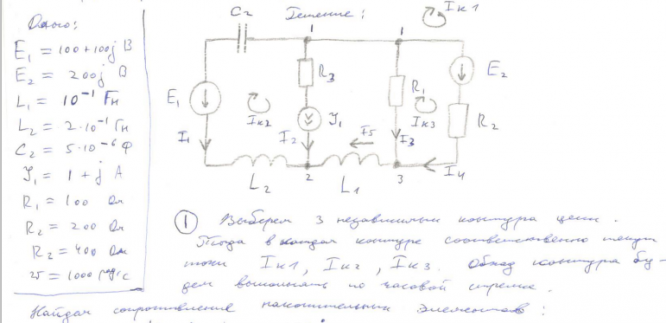 Дано:
E₁ = 100 + 100j В
E₂ = 200j В
L₁ = 10⁻¹ Гн
L₂ = 2·10⁻¹ Гн
C₂ = 5·10⁻⁶ Ф
J₁ = 1 + j А
R₁ = 100 Ом
R₂ = 200 Ом
R₂ = 400 Ом
= 1000 рад/с
C₂ Решение: Iк1
1 1
R₃ R₁ E₂
E₁ Iк2 J₁ Iк3 R₂
I₁ I₂ I₅ I₃ I₄
L₂ 2 L₁ 3
① Выберем 3 независимых контура цепи.
Тогда в каждом контуре соответственно текут
токи Iк1, Iк2, Iк3. Обход контура бу-
дем выполнять по часовой стрелке.
Найдем сопротивление накопительных элементов: